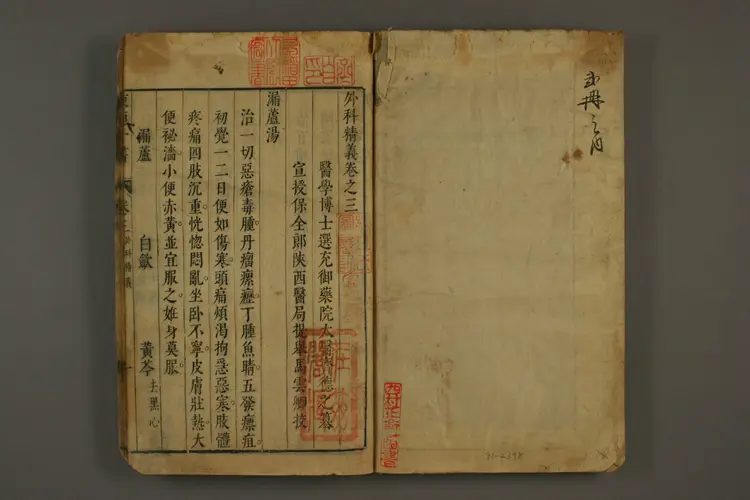 外科精義卷之三
醫學博士選充御藥院太醫齊德之纂
宣授保全郎陝西醫局提舉馬雲卿校
漏蘆湯
治一切惡瘡毒腫丹瘤瘰癧丁腫魚睛五發癰疽
初覺一二日便如傷寒頭痛煩渴拘急惡寒肢體
疼痛四肢沉重恍惚悶亂坐卧不寧皮膚壯熱大
便祕濇小便赤黃並宜服之姙身莫服
漏蘆 白歛 黃芩去黑心
91-2398